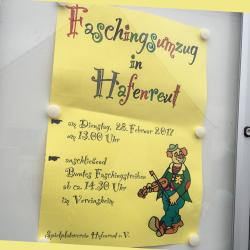 Faschingsumzug
in
Hafenreut
am Dienstag, 28. Februar 2017
um 13.00 Uhr
anschließend
Buntes Faschingstreiben
ab ca. 14.30 Uhr
im Vereinsheim
Spielplatzverein Hafenreut e.V.